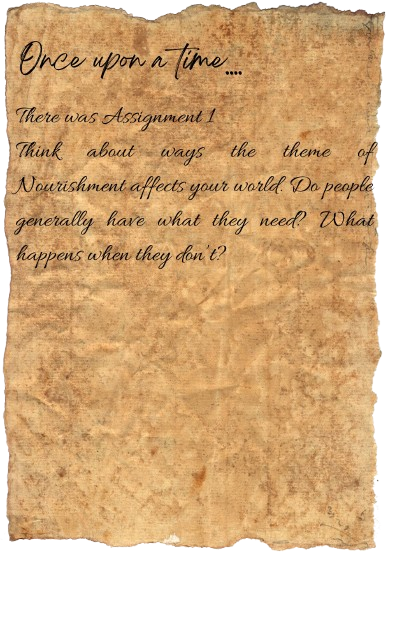 Once upon a time....
There was Assignment 1
Think about ways the theme of
Nourishment affects your world. Do people
generally have what they need? What
happens when they don't?